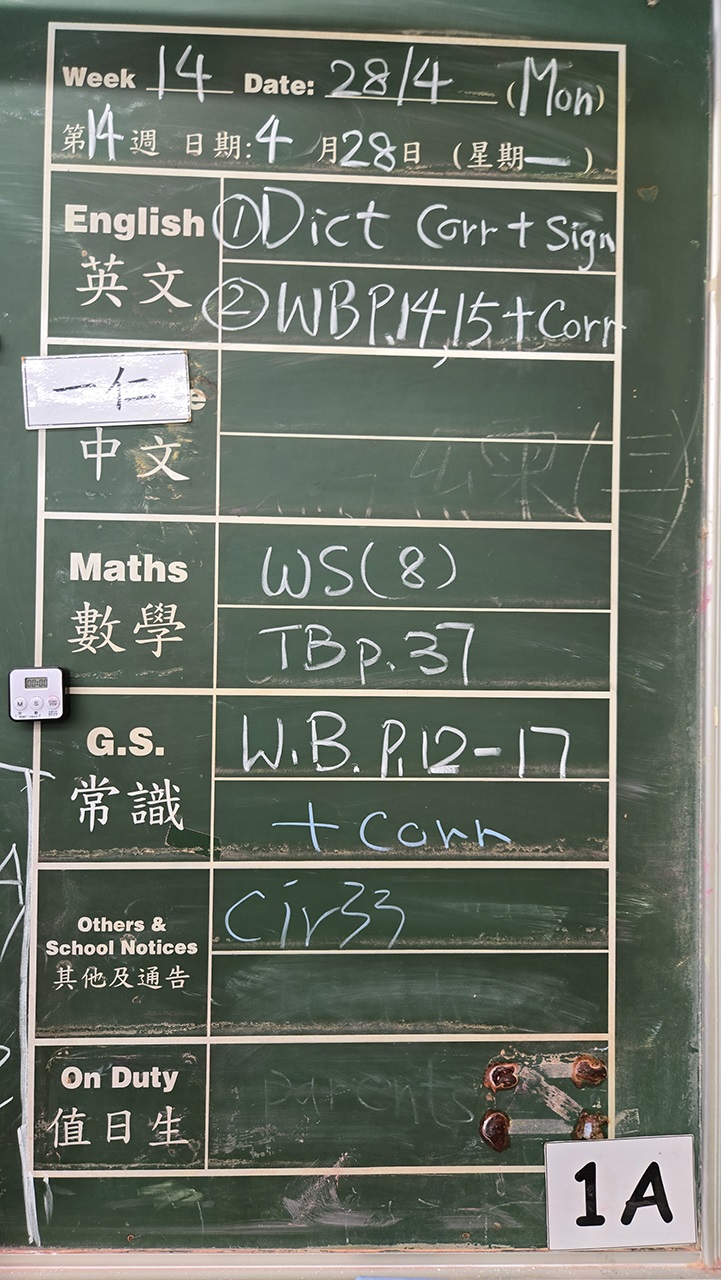 Week 14 Date: 28/4 (Mon)
第14週 日期:4月28日 (星期一)
English ①Dict Corr + Sign
英文 ②WBP.14,15+Corr
一仁
中文
Maths WS(8)
數學 TBp.37
G.S. W.B. P.12-17
常識 + corr
Others & School Notices Cir33
其他及通告
On Duty parents
值日生
1A